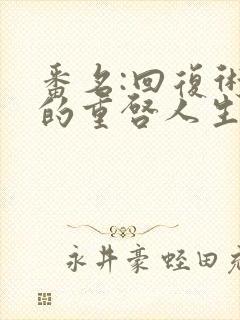 番名:回復術
的重啓人生
永井豪 蛭田充